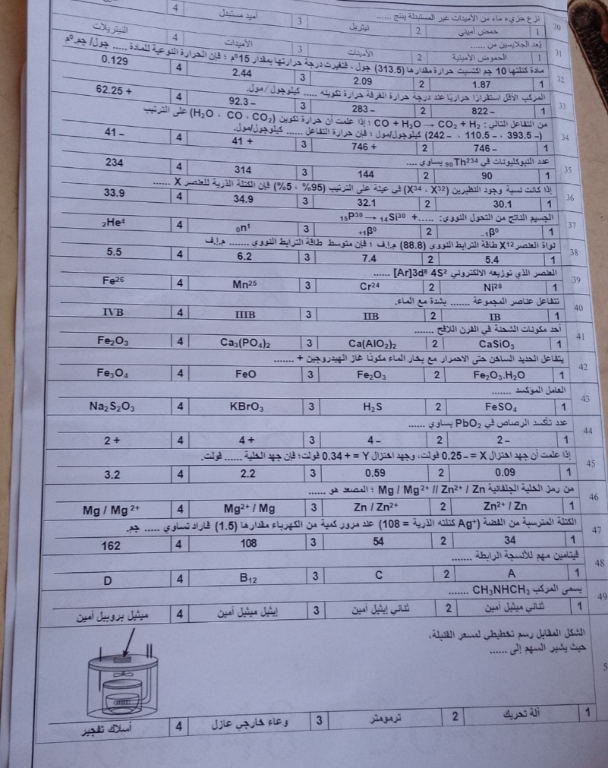 نزع جزيء ماء من الأميدات غير المستبدلة ينتج ......
1 حمض أميني 2 نيتريل 3 أميد مستبدل 4
31 يُعد الجلايسين من ......
1 الحموض الأمينية 2 الأمينات 3 الأميدات 4 النيتريلات
32 مادة كتلتها 10 جم اكتسبت حرارة مقدارها (313.5) جول ، فتغيرت درجة حرارتها بمقدار 15°م ؛ فإن الحرارة النوعية للمادة ..... جول/ جم.°م
1 1.87 2 2.09 3 2.44 4 0.129
33 المركب الأقل استقرارًا حراريًا عند درجة حرارة الغرفة حرارة تكوينه ...... كيلوجول /مول.
1 822 – 2 283 – 3 92.3 – 4 62.25 +
34 من التفاعل التالي : CO + H₂O → CO₂ + H₂ ؛ إذا علمت أن حرارة تكوين (H₂O ، CO ، CO₂) على الترتيب
(– 393.5 ، – 110.5 ، – 242) كيلوجول/مول ؛ فإن حرارة التفاعل ...... كيلوجول/مول.
1 746 – 2 746 + 3 41 + 4 41 –
35 عدد النيوكليونات في ₉₀Th²³⁴ يساوي ....
1 90 2 144 3 314 4 234
36 إذا كانت نسبة وجود النظيرين (X³² ، X³⁴) في عينة على الترتيب (95% ، 5%) فإن الكتلة الذرية للعنصر X ......
1 30.1 2 32.1 3 34.9 4 33.9
37 الجسيم الناتج من التحول النووي: .....+ ₁₅P³⁰ → ₁₄Si³⁰
1 ₋₁β⁰ 2 ₊₁β⁰ 3 ₀n¹ 4 ₂He⁴
38 لنواة العنصر X¹² طاقة الترابط النووي (88.8) م.إ.ف ؛ فإن متوسط طاقة الترابط النووي ....... م.إ.ف
1 5.4 2 7.4 3 6.2 4 5.5
39 العنصر الذي توزيعه الالكتروني [Ar]3d⁸ 4S² ......
1 Ni²⁸ 2 Cr²⁴ 3 Mn²⁵ 4 Fe²⁶
40 تتفاعل عناصر المجموعة ....... بشدة مع الماء.
1 IB 2 IIB 3 IIIB 4 IVB
41 أحد مكونات الشحنة في الفرن اللافح .......
1 CaSiO₃ 2 Ca(AlO₂)₂ 3 Ca₃(PO₄)₂ 4 Fe₂O₃
42 يتفاعل الحديد الساخن حتى الاحمرار مع بخار الماء مكونًا غاز الهيدروجين + .......
1 Fe₂O₃.H₂O 2 Fe₂O₃ 3 FeO 4 Fe₃O₄
43 العامل المؤكسد .......
1 FeSO₄ 2 H₂S 3 KBrO₃ 4 Na₂S₂O₃
44 عدد تأكسد الرصاص في PbO₂ يساوي ......
1 2 – 2 4 – 3 4 + 4 2 +
45 إذا علمت أن جهد اختزال X = – 0.25 فولت، وجهد اختزال Y = + 0.34 فولت؛ فإن جهد الخلية ...... فولت.
1 0.09 2 0.59 3 2.2 4 3.2
46 من رمز الخلية الجلفانية Mg / Mg²⁺ // Zn²⁺ / Zn ؛ المصعد هو ......
1 Zn²⁺ / Zn 2 Zn / Zn²⁺ 3 Mg²⁺ / Mg 4 Mg / Mg²⁺
47 الكتلة المترسبة من الفضة (Ag⁺ كتلته الذرية = 108) عند مرور كمية من الكهرباء مقدارها (1.5) فاراد تساوي ..... جم.
1 34 2 54 3 108 4 162
48 فيتامين مهم للأنسجة الرابطة .......
1 A 2 C 3 B₁₂ 4 D
49 يسمى المركب CH₃NHCH₃ .......
1 ثنائي ميثيل أمين 2 ثنائي إيثيل أمين 3 إيثيل ميثيل أمين 4 ميثيل بروبيل أمين
الشكل المقابل رسم تخطيطي لمسعر القنبلة،
حيث يشير السهم إلى ......
1 آلة تحريك 2 ترمومتر 3 وعاء خارجي عازل 4 أسلاك تفجير